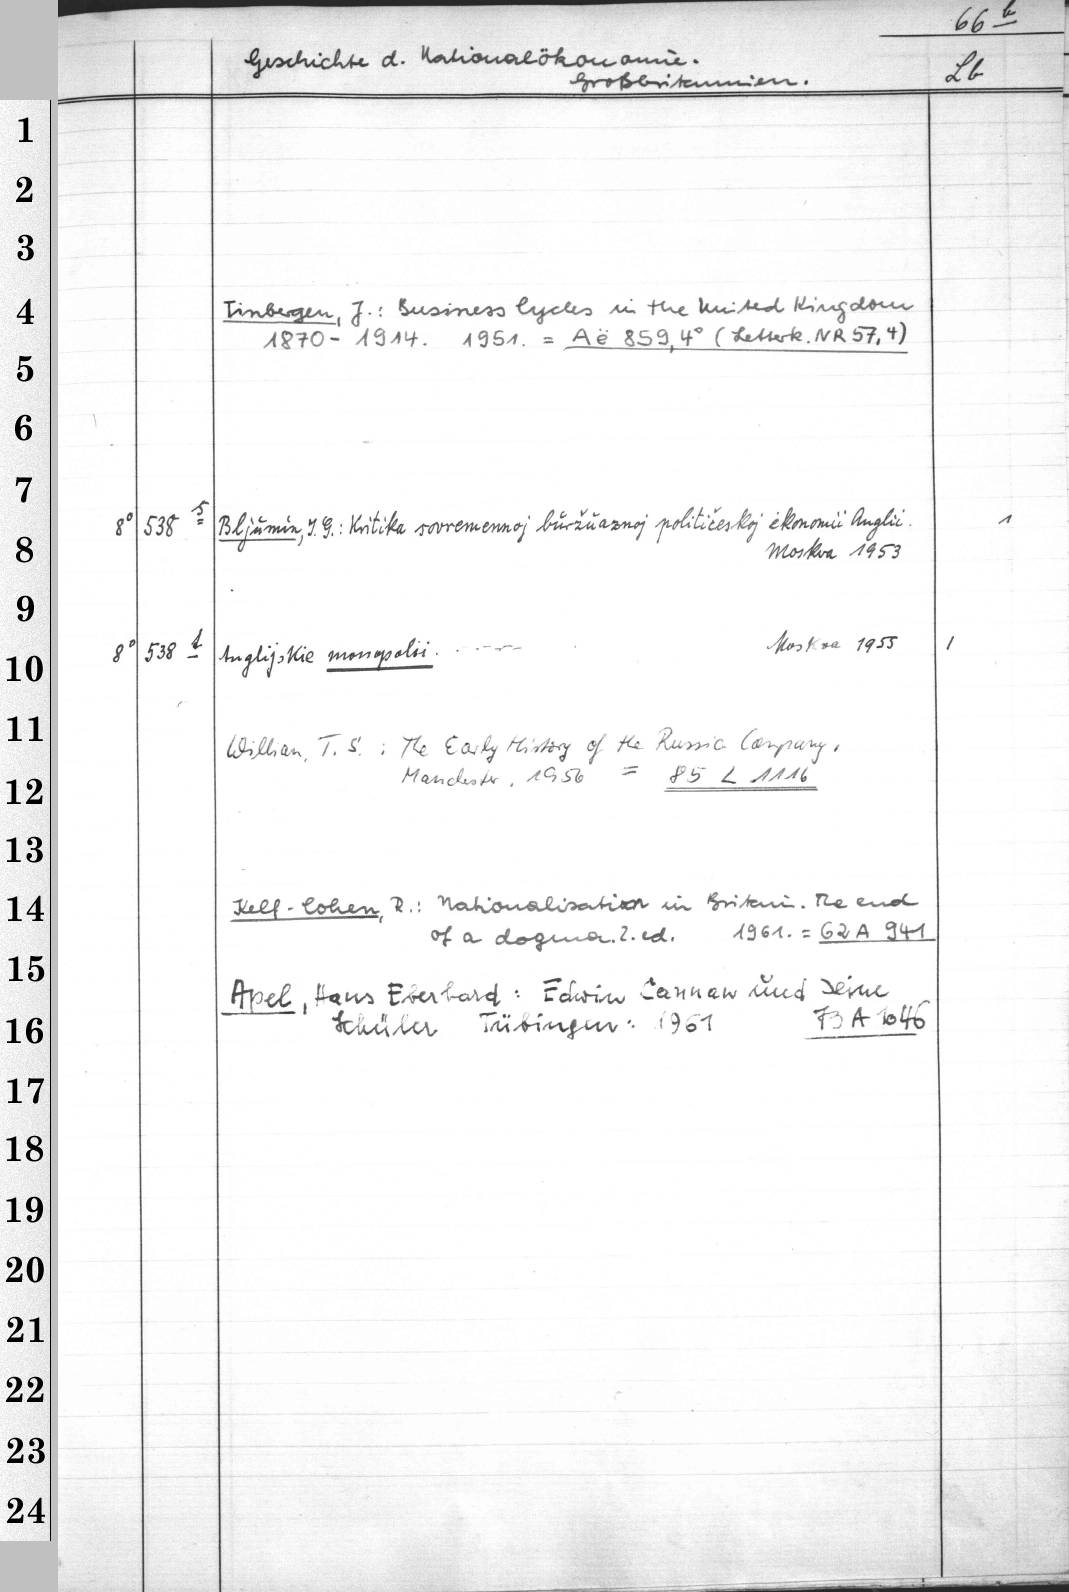 66 b
Geschichte d. Nationalökonomie.
Lb
Großbritannien.
1
2
3
4 Tinbergen, J.: Business Cycles in the United Kingdom
1870-1914. 1951. = Aë 859,4° (Letterk. NR 57,4)
5
6
7
8° 538 s Bljumin, I. G.: Kritika sovremennoj buržuaznoj političeskoj ėkonomii Anglii. 1
8 Moskva 1953
9
8° 538 t Anglijskie monopolii. Moskva 1955 1
10
11 Willan, T. S.: The Early History of the Russia Company,
12 Manchester, 1956 = 85 L 1116
13
14 Kelf-Cohen, R.: Nationalisation in Britain. The end
of a dogma. 2. ed. 1961. = 62 A 941
15
Apel, Hans Eberhard: Edwin Cannan und seine
16 Schüler Tübingen: 1961 73 A 1046
17
18
19
20
21
22
23
24